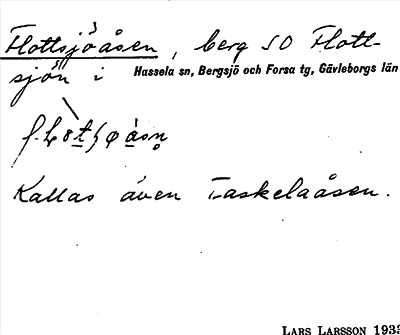 Flottsjöåsen, berg SO Flott-
sjön i Hassela sn, Bergsjö och Forsa tg, Gävleborgs län
Kallas även Taskelaåsen.
LARS LARSSON 1933